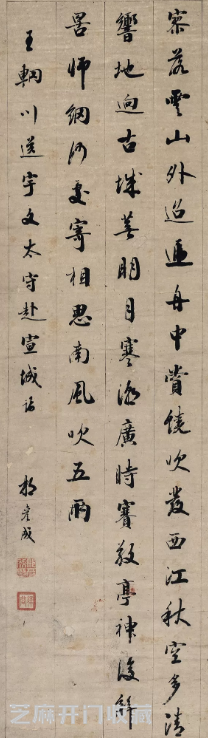 寥落雲山外迢遞舟中賞鐃吹發西江秋空多清
響地迥古城蕪月明寒潮廣時賽敬亭神復解
罟師網何處寄相思南風吹五兩
王輞川送宇文太守赴宣城詩
芝麻开门收藏